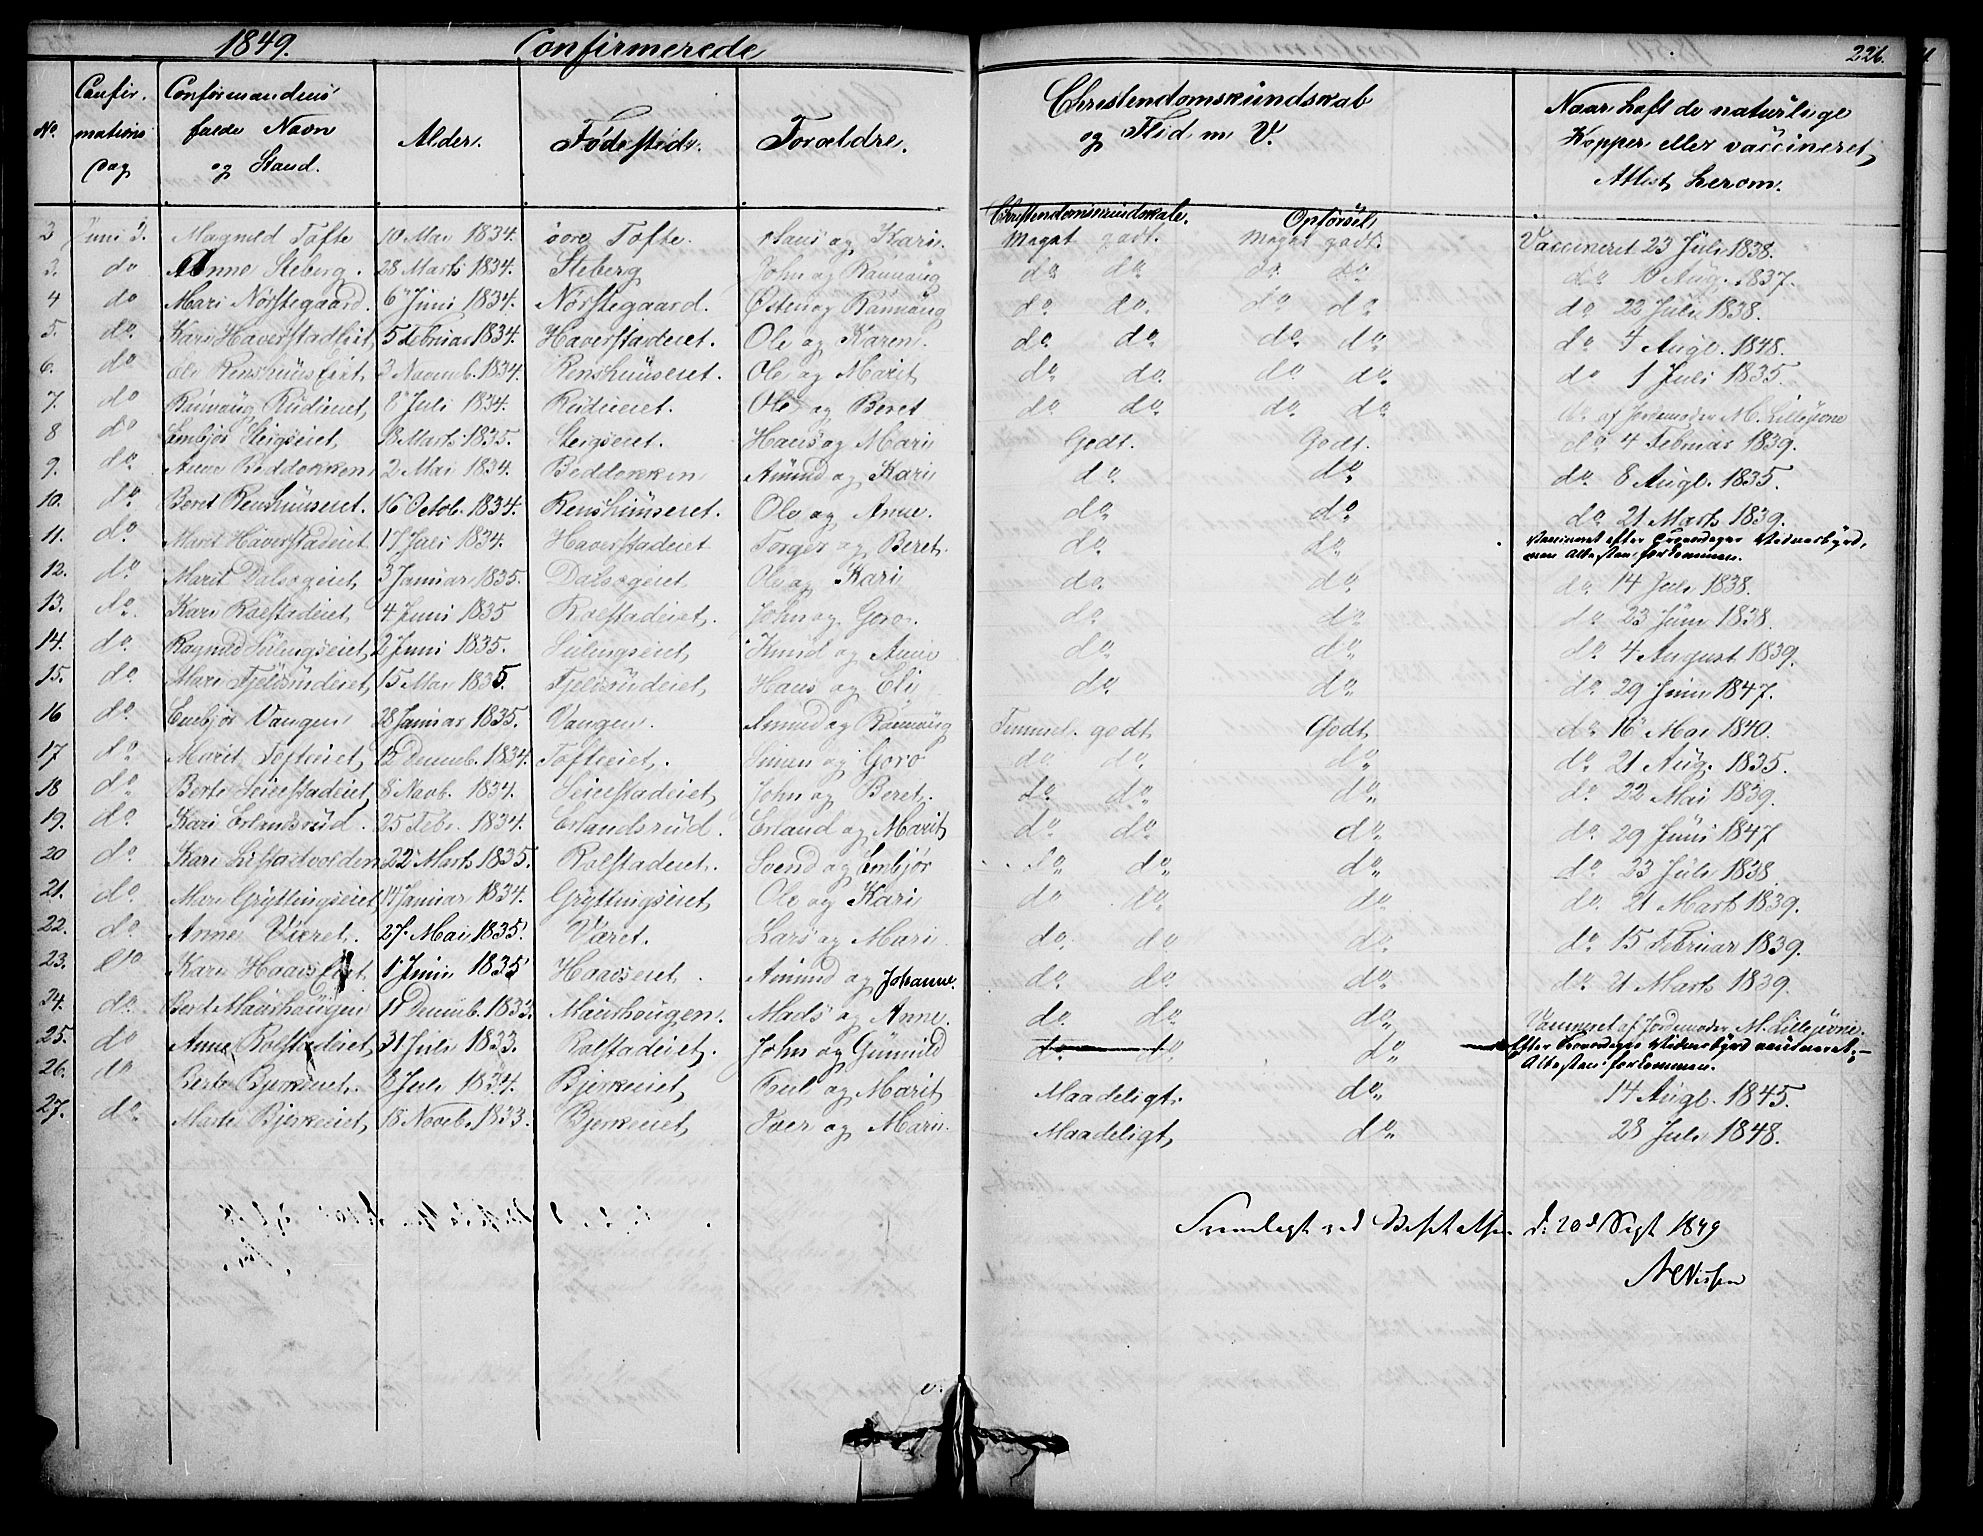 1849. Confirmerede 226.
No. Confirmations Dag Confirmandens fulde Navn og Stand. Alder. Fødested. Forældre. Christendomskundskab og Flid m V. Naar haft de naturlige Kopper eller vaccineret, Attest herom.
Christendomskundskab. Opførsel,
2 Juni 3. Magnild Tofte 10 Mai 1834. øvre Tofte. Hans og Kari. Meget godt. Meget godt. Vaccineret 23 Juli 1838.
3. do Anne Steberg. 28 Marts 1834. Steberg John og Rannaug do do. do do. do Aug. 1837.
4 do Mari Nørstegaard. 6 Juni 1834. Nørstegaard. Østen og Rannaug do do. do do. do 22 Juli 1838.
5. do. Kari Haverstadeiet, 5 Februar 1834. Haverstadeiet. Ole og Karen. do do. do do. do 4 Augl. 1848.
6. do Ole Renshuuseiet 2 Novemb. 1834. Renshuuseiet. Ole og Marit do do. do do. do 1 Juli 1835.
7. do Rannaug Rudieiet, 8 Juli 1834. Rudieiet. Ole og Beret do do. do do. do af Jordemoder M. Lillejovne
8 do Embjør Steigseiet, 18 Marts 1835. Steigseiet. Hans og Mari Godt. Godt. do 4 Februar 1839.
9. do Anne Beddokken 2 Mai 1834. Beddokken Amund og Kari do. do. do. 8 Augl. 1835.
10. do. Beret Renshuuseiet. 16 Octob. 1834. Renshuuseiet. Ole og Anne. do. do. do. 21 Marts 1839.
11. do. Marit Haverstadeiet 17 Juli 1834. Haverstadeiet Torger og Beret. do. do. Vaccineret efter Vidnesbyrd, men Attesten forkommen.
12. do. Marit Dalsegeiet, 3 Januar 1835. Dalsegeiet Ole og Kari do. do. do. 14 Juli 1838.
13. do. Kari Rolstadeiet, 4 Juni 1835 Rolstadeiet. John og Goro. do. do. do. 23 Juni 1838.
14. do. Ragnild Sulungseiet, 2 Juni 1835. Sulungseiet, Knud og Anne do. do. do. 4 August 1839.
15. do. Mari Fjeldsudeiet, 15 Mai 1835. Fjeldsudeiet, Hans og Eli do. do. do. 29 Juni 1847.
16 do. Embjør Vangen 28 Januar 1835. Vangen. Amund og Rannaug Temmel. godt. Godt. do. 16 Mai 1840.
17 do. Marit Tofteiet, 12 Decemb. 1834. Tofteiet. Simen og Goro do. do. do. do. 21 Aug. 1835.
18 do. Berte Seielstadeiet 8 Novb. 1834. Seielstadeiet, John og Beret. do. do. do. do. 22 Mai 1839.
19. do. Kari Erlandsrud. 25 Febr. 1834. Erlandsrud. Erland og Marit, do do. do. do. 29 Juni 1847
20 do. Kari Listadvolden 22 Marts 1835. Rolstadeiet. Svend og Embjør do. do. do. do. 23 Juli 1838.
21. do. Mari Gryttingseiet, 14 Januar 1834. Gryttingseiet, Ole og Kari do do. do. do. 21 Marts 1839.
22. do. Anne Vieret. 27. Mai 1835. Været. Lars og Mari do. do do. do. 15 Februar 1839.
23. do Kari Haavseiet. 1 Juni 1835 Haavseiet. Amund og Johanne. do. do. do. do. 21 Marts 1839.
24. do. Berte Maurhougen 11 Decemb. 1833. Maurhougen. Mads og Anne. do. do. do. Vaccineret af Jordemoder M. Lillejovne.
25. do Anne Rolstadeiet, 31 Juli 1833. Rolstadeiet. John og Gunnild do do. do. Efter Vidnesbyrd vaccineret, – Attesten forkommen.
26. do Berte Bjerkeiet. 8 Juli 1834. Bjerkeiet, og Marit Maadeligt. do. 14 Augl. 1845.
27. do. Marte Bjerkeiet, 18 Novb. 1833. Bjerkeiet, Iver og Mari. Maadeligt, do. 28 Juli 1848.
Fremlagt ved Visitatsen d. 20d Sept 1849